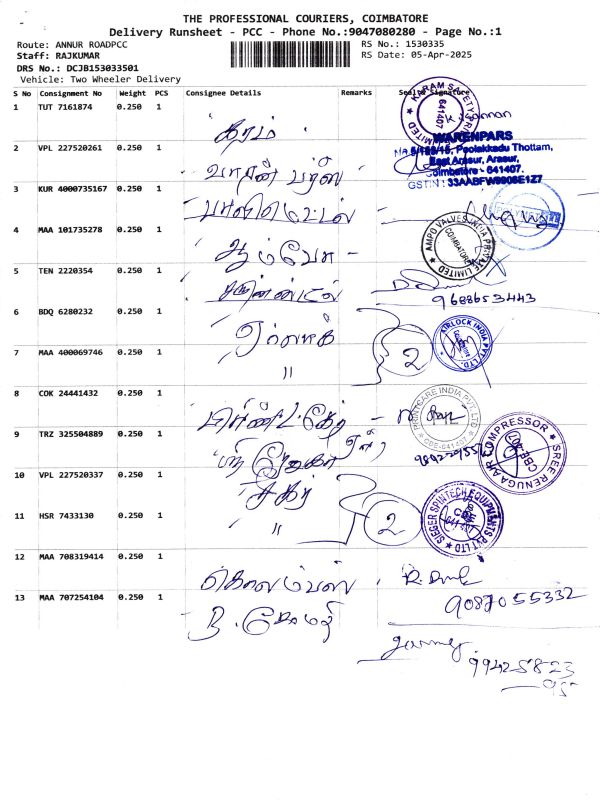 THE PROFESSIONAL COURIERS, COIMBATORE
Delivery Runsheet - PCC - Phone No.:9047080280 - Page No.:1
Route: ANNUR ROADPCC
RS No.: 1530335
Staff: RAJKUMAR
RS Date: 05-Apr-2025
DRS No.: DCJB153033501
Vehicle: Two Wheeler Delivery
S No Consignment No Weight PCS Consignee Details Remarks Seal & Signature
1 TUT 7161874 0.250 1
கரம்
641407
2 VPL 227520261 0.250 1
வாரன் பர்ஸ்
WARENPARS
Peolakkadu Thottam,
East Arasur, Arasur,
Coimbatore - 641407.
3 KUR 4000735167 0.250 1
4 MAA 101735278 0.250 1
ஆம்போ -
AMPO VALVES INDIA PRIVATE LIMITED
COIMBATORE
5 TEN 2220354 0.250 1
9688653443
6 BDQ 6280232 0.250 1
ஏர்லாக்
2
AIRLOCK INDIA PVT. LTD.
7 MAA 400069746 0.250 1
"
8 COK 24441432 0.250 1
பிரிண்ட் கேர் -
PRINTCARE INDIA PVT LTD
9 TRZ 325504889 0.250 1
ஸ்ரீ ரேணுகா ஏர்
SREE RENUGA AIR COMPRESSOR
10 VPL 227520337 0.250 1
சீகர்
2
SIEGER SPINTECH EQUIPMENTS PVT LTD
11 HSR 7433130 0.250 1
"
12 MAA 708319414 0.250 1
கொலம்பஸ்
9087055332
13 MAA 707254104 0.250 1
R. கோமதி